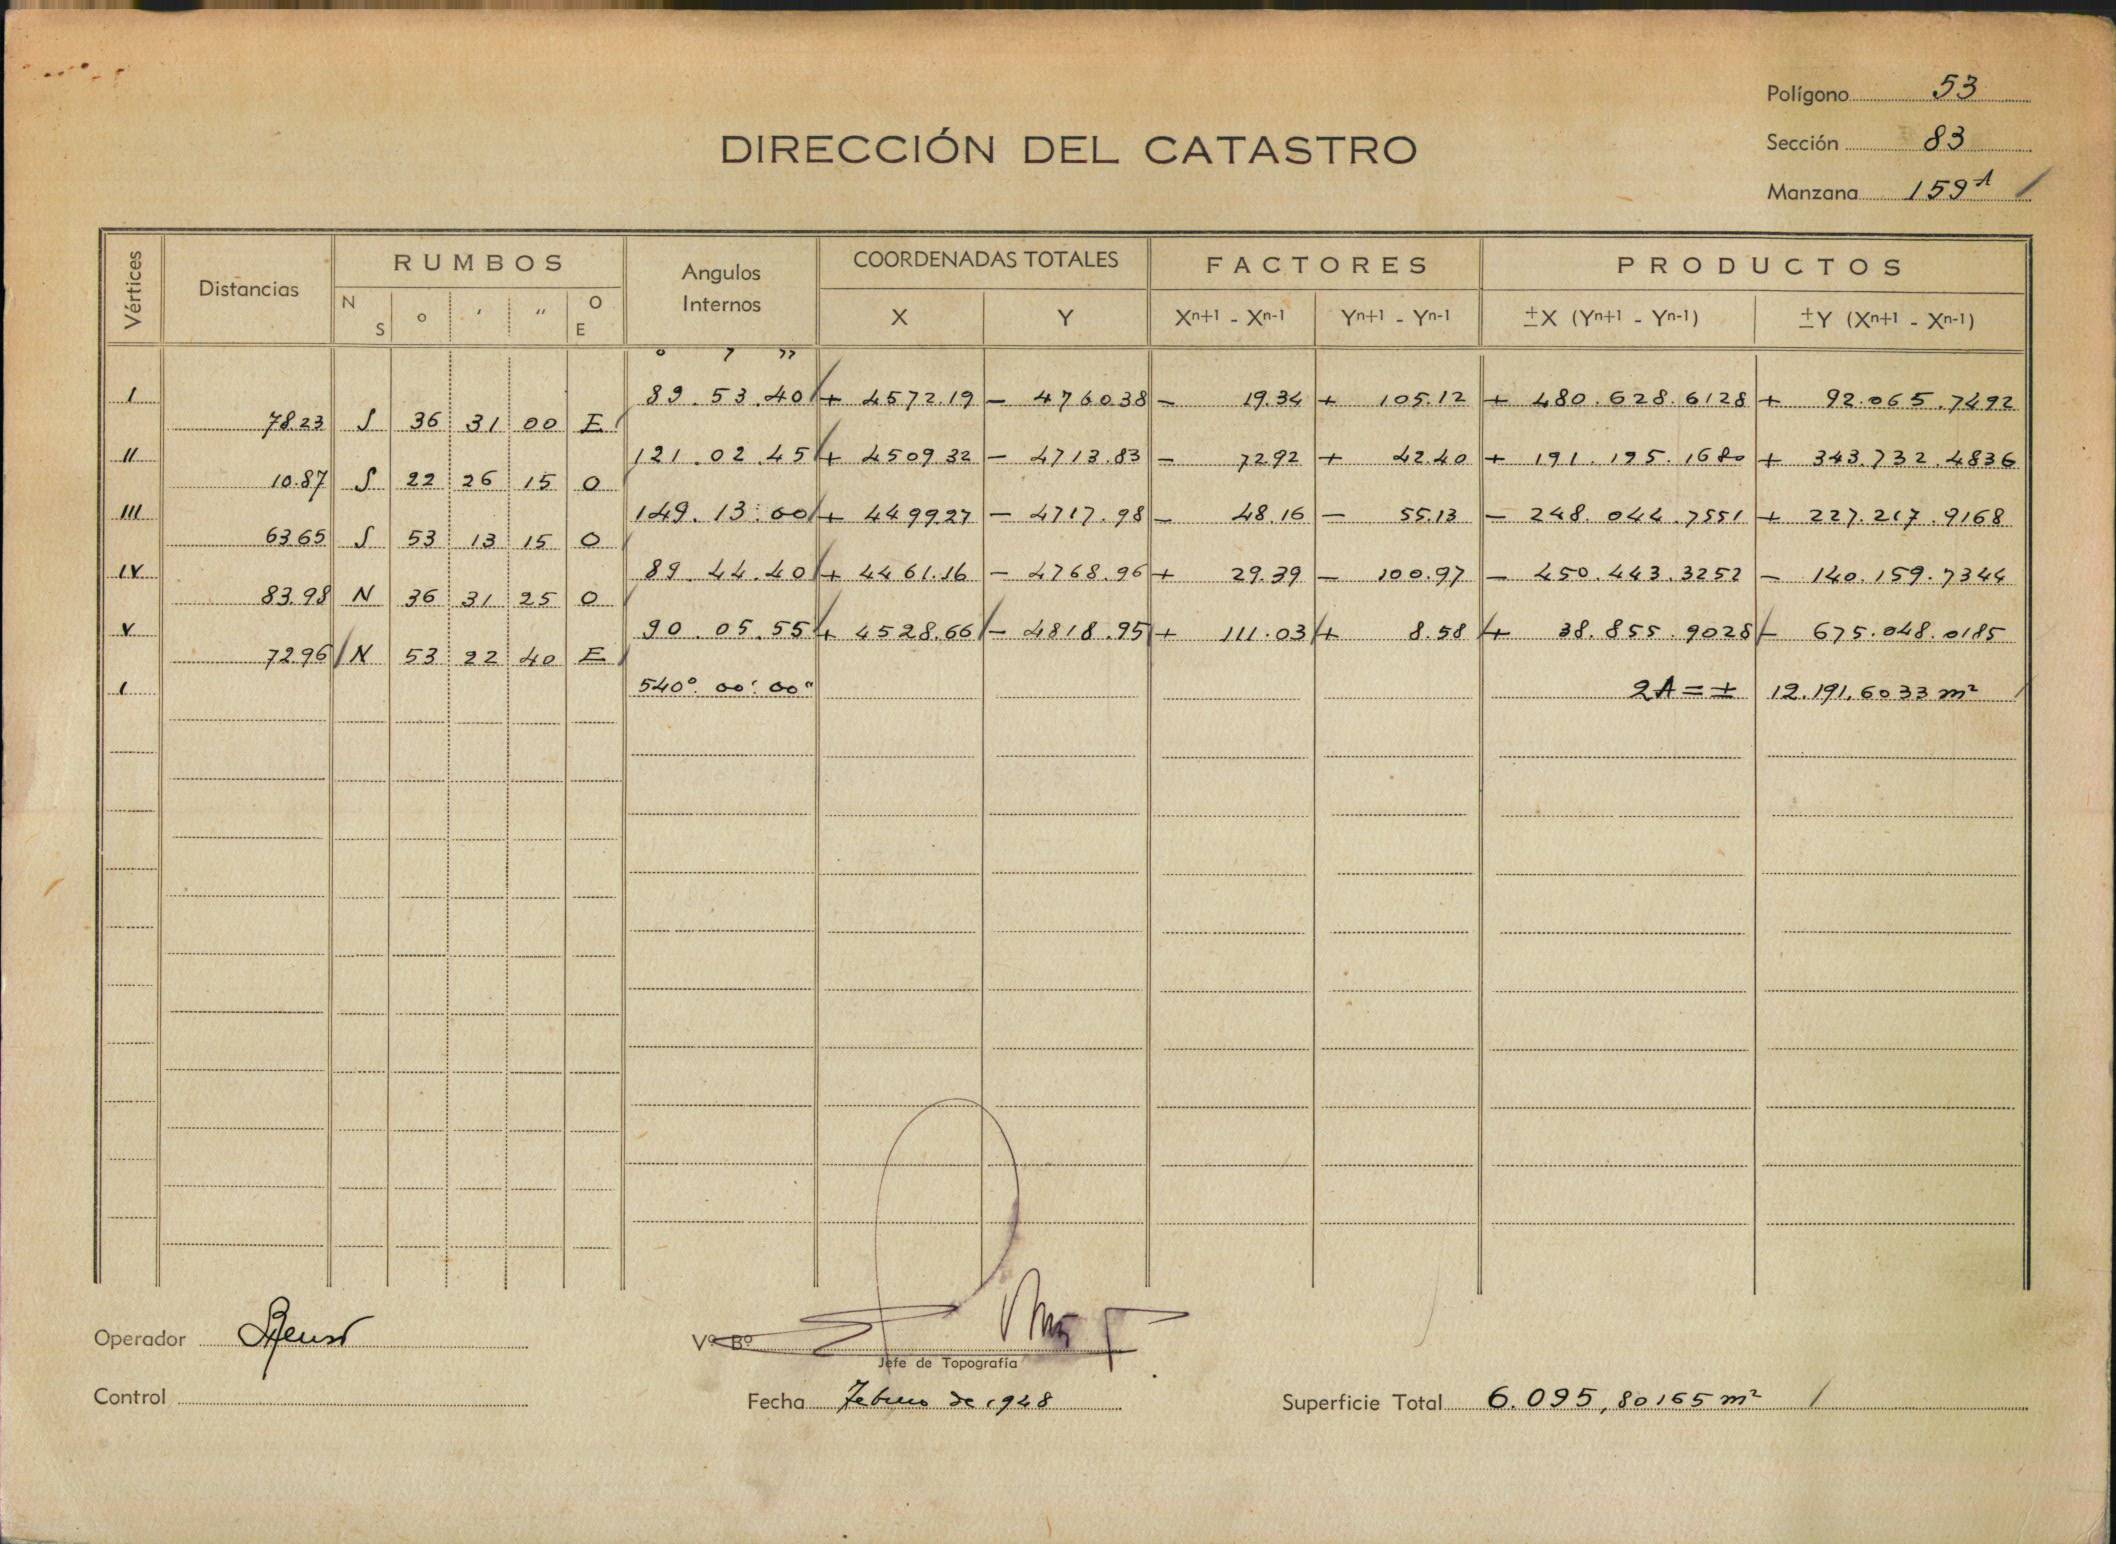 Polígono 53
DIRECCIÓN DEL CATASTRO
Sección 83
Manzana 159A
Vértices Distancias RUMBOS Angulos Internos COORDENADAS TOTALES FACTORES PRODUCTOS
N S o ′ ″ O E X Y Xn+1 - Xn-1 Yn+1 - Yn-1 ±X (Yn+1 - Yn-1) ±Y (Xn+1 - Xn-1)
o ′ ″
I 89.53.40 + 4572.19 - 4760.38 - 19.34 + 105.12 + 480.628.6128 + 92.065.7492
78.23 S 36 31 00 E
II 121.02.45 + 4509.32 - 4713.83 - 72.92 + 42.40 + 191.195.1680 + 343.732.4836
10.87 S 22 26 15 O
III 149.13.00 + 4499.27 - 4717.98 - 48.16 - 55.13 - 248.044.7551 + 227.217.9168
63.65 S 53 13 15 O
IV 89.44.40 + 4461.16 - 4768.96 + 29.39 - 100.97 - 450.443.3252 - 140.159.7344
83.98 N 36 31 25 O
V 90.05.55 + 4528.66 - 4818.95 + 111.03 + 8.58 + 38.855.9028 - 675.048.0185
72.96 N 53 22 40 E
I 540° 00′ 00″ 2A = ± 12.191,6033 m²
Operador
Vº Bº
Jefe de Topografía
Control
Fecha Febrero de 1948
Superficie Total 6.095,80165 m²